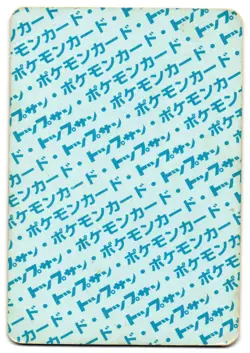 ポケモンカード・
トップサン・ポケモンカード・
ポケモンカード・トップサン・
・トップサン・ポケモンカード・
ポケモンカード・トップサン・
トップサン・ポケモンカード・
ポケモンカード・トップサン・
・トップサン・ポケモンカード・
ポケモンカード・トップサン・
トップサン・ポケモンカード・
ポケモンカード・トップサン・
トップサン・ポケモンカード・
ポケモンカード・トップサン
・トップサン・